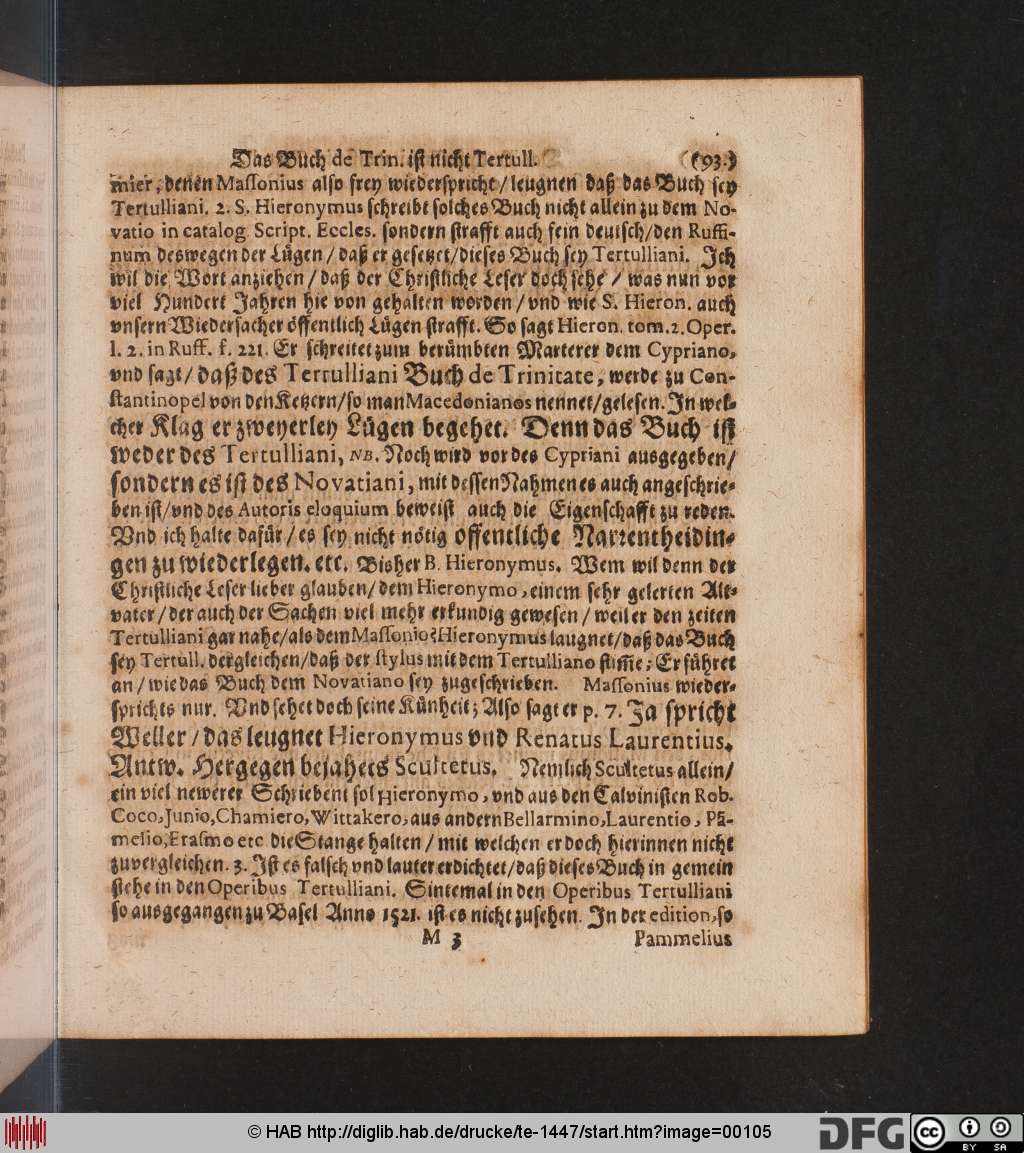 Das Buch de Trin. ist nicht Tertull. (93.)
mier, denen Massonius also frey wiederspricht/ leugnen daß das Buch sey
Tertulliani. 2. S. Hieronymus schreibt solches Buch nicht allein zu dem No-
vatio in catalog. Script. Eccles. sondern strafft auch fein deutsch/ den Ruffi-
num deswegen der Lügen/ daß er gesetzet/ dieses Buch sey Tertulliani. Ich
wil die Wort anziehen/ daß der Christliche Leser doch sehe/ was nun vor
viel Hundert Jahren hie von gehalten worden/ vnd wie S. Hieron. auch
vnsern Wiedersacher öffentlich Lügen strafft. So sagt Hieron. tom. 2. Oper.
l. 2. in Ruff. f. 221. Er schreitet zum berümbten Marterer dem Cypriano,
vnd sagt/ daß des Tertulliani Buch de Trinitate, werde zu Con-
stantinopel von den Ketzern/ so man Macedonianos nennet/ gelesen. In wel-
cher Klag er zweyerley Lügen begehet. Denn das Buch ist
weder des Tertulliani, NB. Noch wird vor des Cypriani ausgegeben/
sondern es ist des Novatiani, mit dessen Nahmen es auch angeschrie-
ben ist/ vnd des Autoris eloquium beweist auch die Eigenschafft zu reden.
Vnd ich halte dafür/ es sey nicht nötig offentliche Narrentheidin-
gen zu wiederlegen. etc. Bisher B. Hieronymus. Wem wil denn der
Christliche Leser lieber glauben/ dem Hieronymo, einem sehr gelerten Alt-
vater/ der auch der Sachen viel mehr erkundig gewesen/ weil er den zeiten
Tertulliani gar nahe/ als dem Massonio? Hieronymus laugnet/ daß das Buch
sey Tertull. dergleichen/ daß der stylus mit dem Tertulliano stim̃e; Er führet
an/ wie das Buch dem Novatiano sey zugeschrieben. Massonius wieder-
sprichts nur. Vnd sehet doch seine Künheit; Also sagt er p. 7. Ja spricht
Weller/ das leugnet Hieronymus vnd Renatus Laurentius.
Antw. Hergegen bejahets Scultetus. Nemlich Scultetus allein/
ein viel newerer Schriebent sol Hieronymo, vnd aus den Calvinisten Rob.
Coco, Junio, Chamiero, Wittakero, aus andern Bellarmino, Laurentio, Pã-
melio, Erasmo etc die Stange halten/ mit welchen er doch hierinnen nicht
zuvergleichen. 3. Ist es falsch vnd lauter erdichtet/ daß dieses Buch in gemein
stehe in den Operibus Tertulliani. Sintemal in den Operibus Tertulliani
so ausgegangen zu Basel Anno 1521. ist es nicht zusehen. In der edition, so
M 3 Pammelius
© HAB http://diglib.hab.de/drucke/te-1447/start.htm?image=00105
DFG cc BY SA